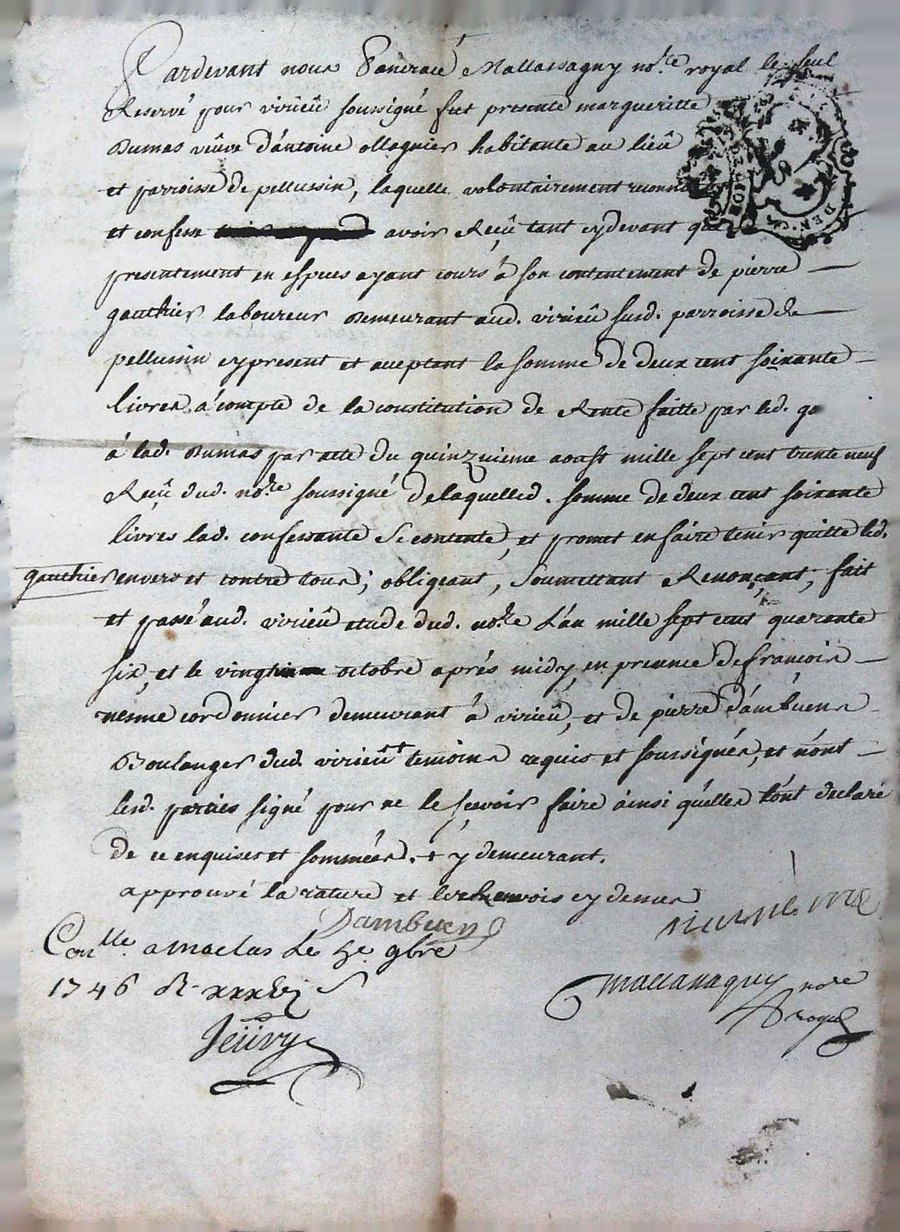 Pardevant nous Pancrace Mallassagny no.re royal le seul
Reservé pour virieû soussigné fut presente margueritte
Dumas veuve d'antoine ollagnier habitante au lieû
et parroisse de pellussin, laquelle volontairement
et confesse avoir Reçû tant cydevant que
presentement en especes ayant cours à son contentement de pierre
gauthier laboureur demeurant aud. virieû susd. parroisse de
pellussin cy present et aceptant la somme de deux cent soixante
livres à compte de la constitution de Rente faitte par led. ga
à lad. Dumas par acte du quinzuieme aoust mille sept cent trente neuf
Reçû dud. no.re soussigné de laquelled. somme de deux cent soixante
livres lad. confessante se contente, et promet en faire tenir quitte led.
gauthier envers et contre tous; obligeant, soumettant Renonçant, fait
et passé aud. virieû etude dud. no.re L'an mille sept cent quarante
six, et le vingt octobre après midy, en presence de francois
cordonnier demeurant à virieû, et de pierre dámbuens
Boulanger dud. virieû temoins requis et soussignés, et n'ont
lesd. parties signé pour ne le sçevoir faire àinsi qu'elles l'ont declaré
de ce enquises et sommées. + y demeurant.
approuvé la rature et les renvois cy dessus
Dambuens
Con.lle a Maclas le 5e 9bre
1746 Rt xxxvi s
Mallassagny nore
royal